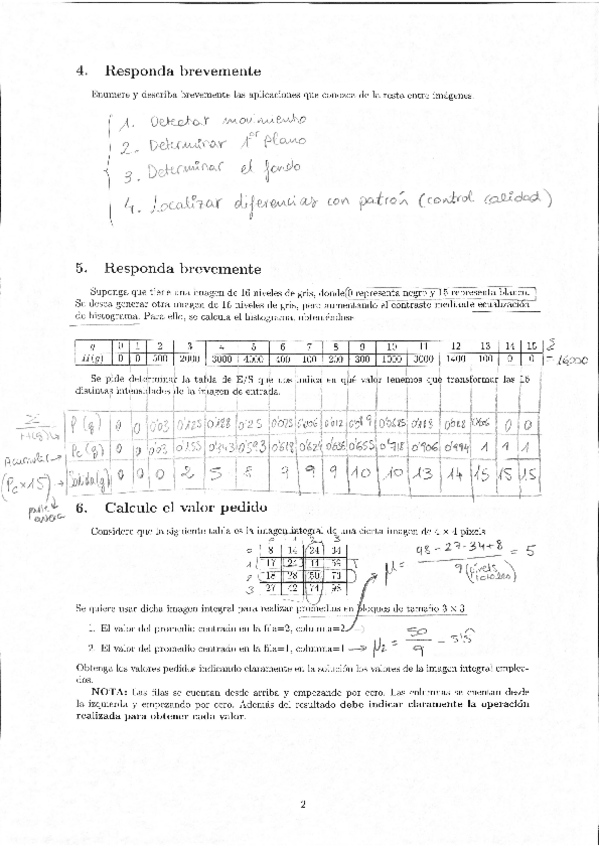 4. Responda brevemente
Enumere y describa brevemente las aplicaciones que conozca de la resta entre imágenes.
1. Detectar movimiento
2. Determinar 1er plano
3. Determinar el fondo
4. Localizar diferencias con patrón (control calidad)
5. Responda brevemente
Suponga que tiene una imagen de 16 niveles de gris, donde 0 representa negro y 15 representa blanco.
Se desea generar otra imagen de 16 niveles de gris, pero aumentando el contraste mediante ecualización
de histograma. Para ello, se calcula el histograma, obteniéndose
g 0 1 2 3 4 5 6 7 8 9 10 11 12 13 14 15 Σ
H(g) 0 0 500 2000 3000 4000 400 100 200 300 1000 3000 1400 100 0 0 = 16000
Se pide determinar la tabla de E/S que nos indica en qué valor tenemos que transformar las 16
distintas intensidades de la imagen de entrada.
P(g) 0 0 0'03 0'125 0'188 0'25 0'025 0'006 0'012 0'019 0'0625 0'188 0'088 0'006 0 0
Acumular → Pc(g) 0 0 0'03 0'155 0'343 0'593 0'618 0'624 0'636 0'655 0'718 0'906 0'994 1 1 1
(Pc×15) → Salida(g) 0 0 0 2 5 8 9 9 9 10 10 13 14 15 15 15
parte entera
6. Calcule el valor pedido
Considere que la siguiente tabla es la imagen integral de una cierta imagen de 4 × 4 píxels
0 1 2 3
0 8 14 24 34
1 17 24 44 59
2 18 28 50 73
3 27 42 74 98
μ = 98-27-34+8 / 9 (píxels totales) = 5
Se quiere usar dicha imagen integral para realizar promedios en bloques de tamaño 3 × 3
1. El valor del promedio centrado en la fila=2, columna=2
2. El valor del promedio centrado en la fila=1, columna=1 → μ2 = 50/9 = 5'5
Obtenga los valores pedidos indicando claramente en la solución los valores de la imagen integral emplea-
dos.
NOTA: Las filas se cuentan desde arriba y empezando por cero. Las columnas se cuentan desde
la izquierda y empezando por cero. Además del resultado debe indicar claramente la operación
realizada para obtener cada valor.
2